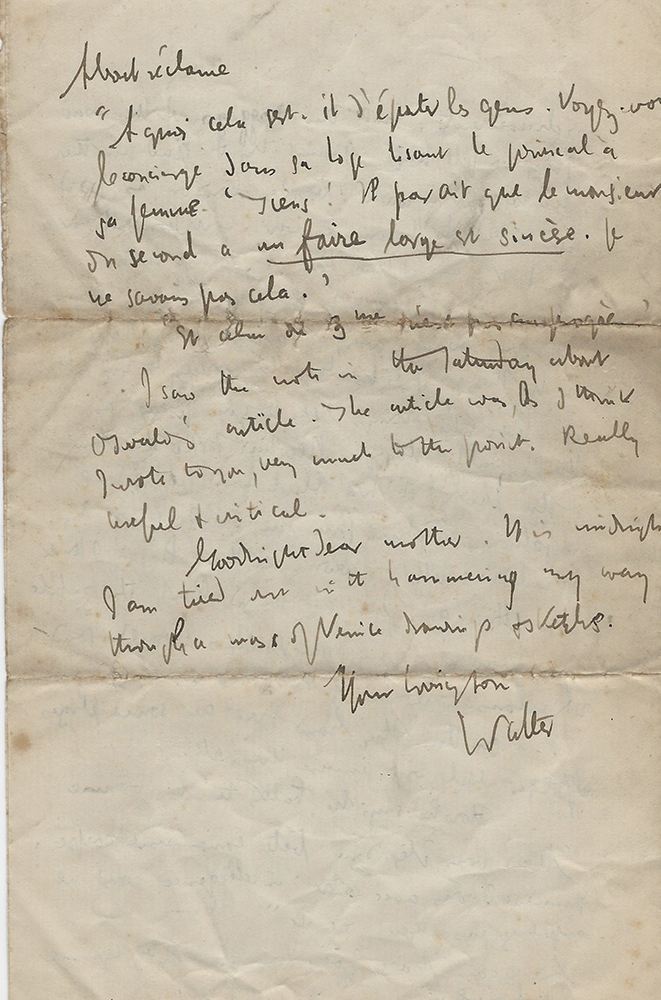 About réclame
"A quoi cela sert-il d'épater les gens. Voyez-vous
le concierge dans sa loge lisant le journal à
sa femme. "Tiens! Il parait que le monsieur
du second a un faire large et sincère. Je
ne savais pas cela."
"Et celui du 3me n'est pas
I saw the note in the Saturday about
Oswald's article. The article was, as I think
I wrote to you, very much to the point. Really
useful & critical.
Goodnight dear mother. It is midnight
I am tired out with hammering my way
through a mass of Venice drawings & sketches.
Your loving son
Walter